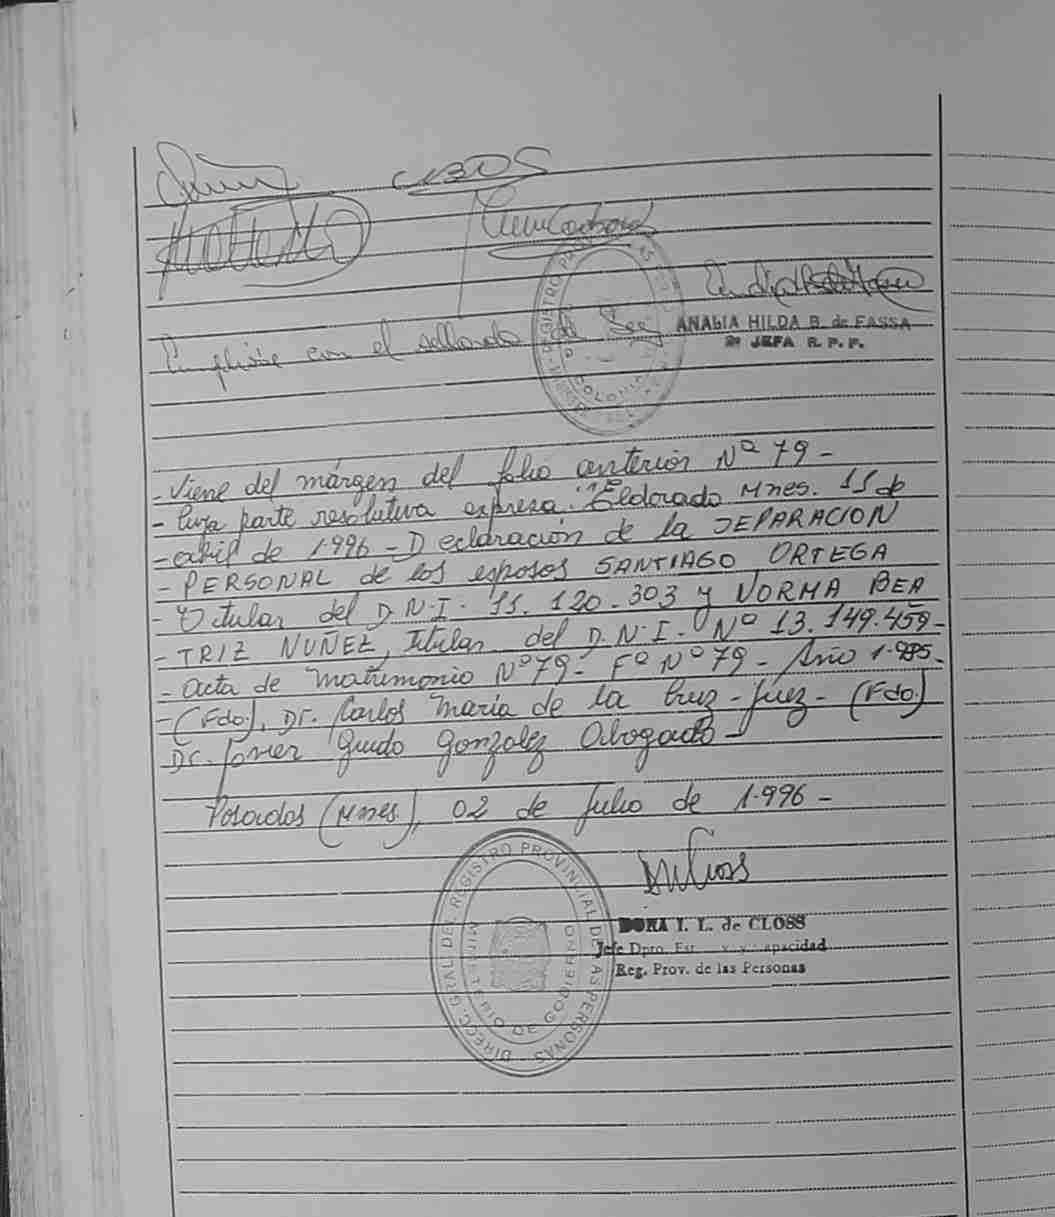 con el sellado de Ley
ANALIA HILDA B. de FASSA
JEFA R. P. P.
- Viene del márgen del folio anterior Nº 79 -
- Cuya parte resolutiva expresa: "Eldorado Mnes. 15 de
- abril de 1.996 - Declaración de la SEPARACION
- PERSONAL de los esposos SANTIAGO ORTEGA
- titular del D.N.I. 11.120.303 y NORMA BEA
- TRIZ NUÑEZ, titular del D.N.I. Nº 13.149.459 -
- acta de matrimonio Nº 79 - Fº Nº 79 - Año 1.985 -
- (Fdo.), Dr. Carlos María de la Cruz - Juez - (Fdo)
Dr. Javier Guido Gonzalez Abogado -
Posadas (Mnes), 02 de Julio de 1.996 -
DIRECC. GRAL DEL REGISTRO PROVINCIAL DE LAS PERSONAS
MINISTERIO DE GOBIERNO
DORA I. L. de CLOSS
Jefe Dpto. Est. y Capacidad
Reg. Prov. de las Personas